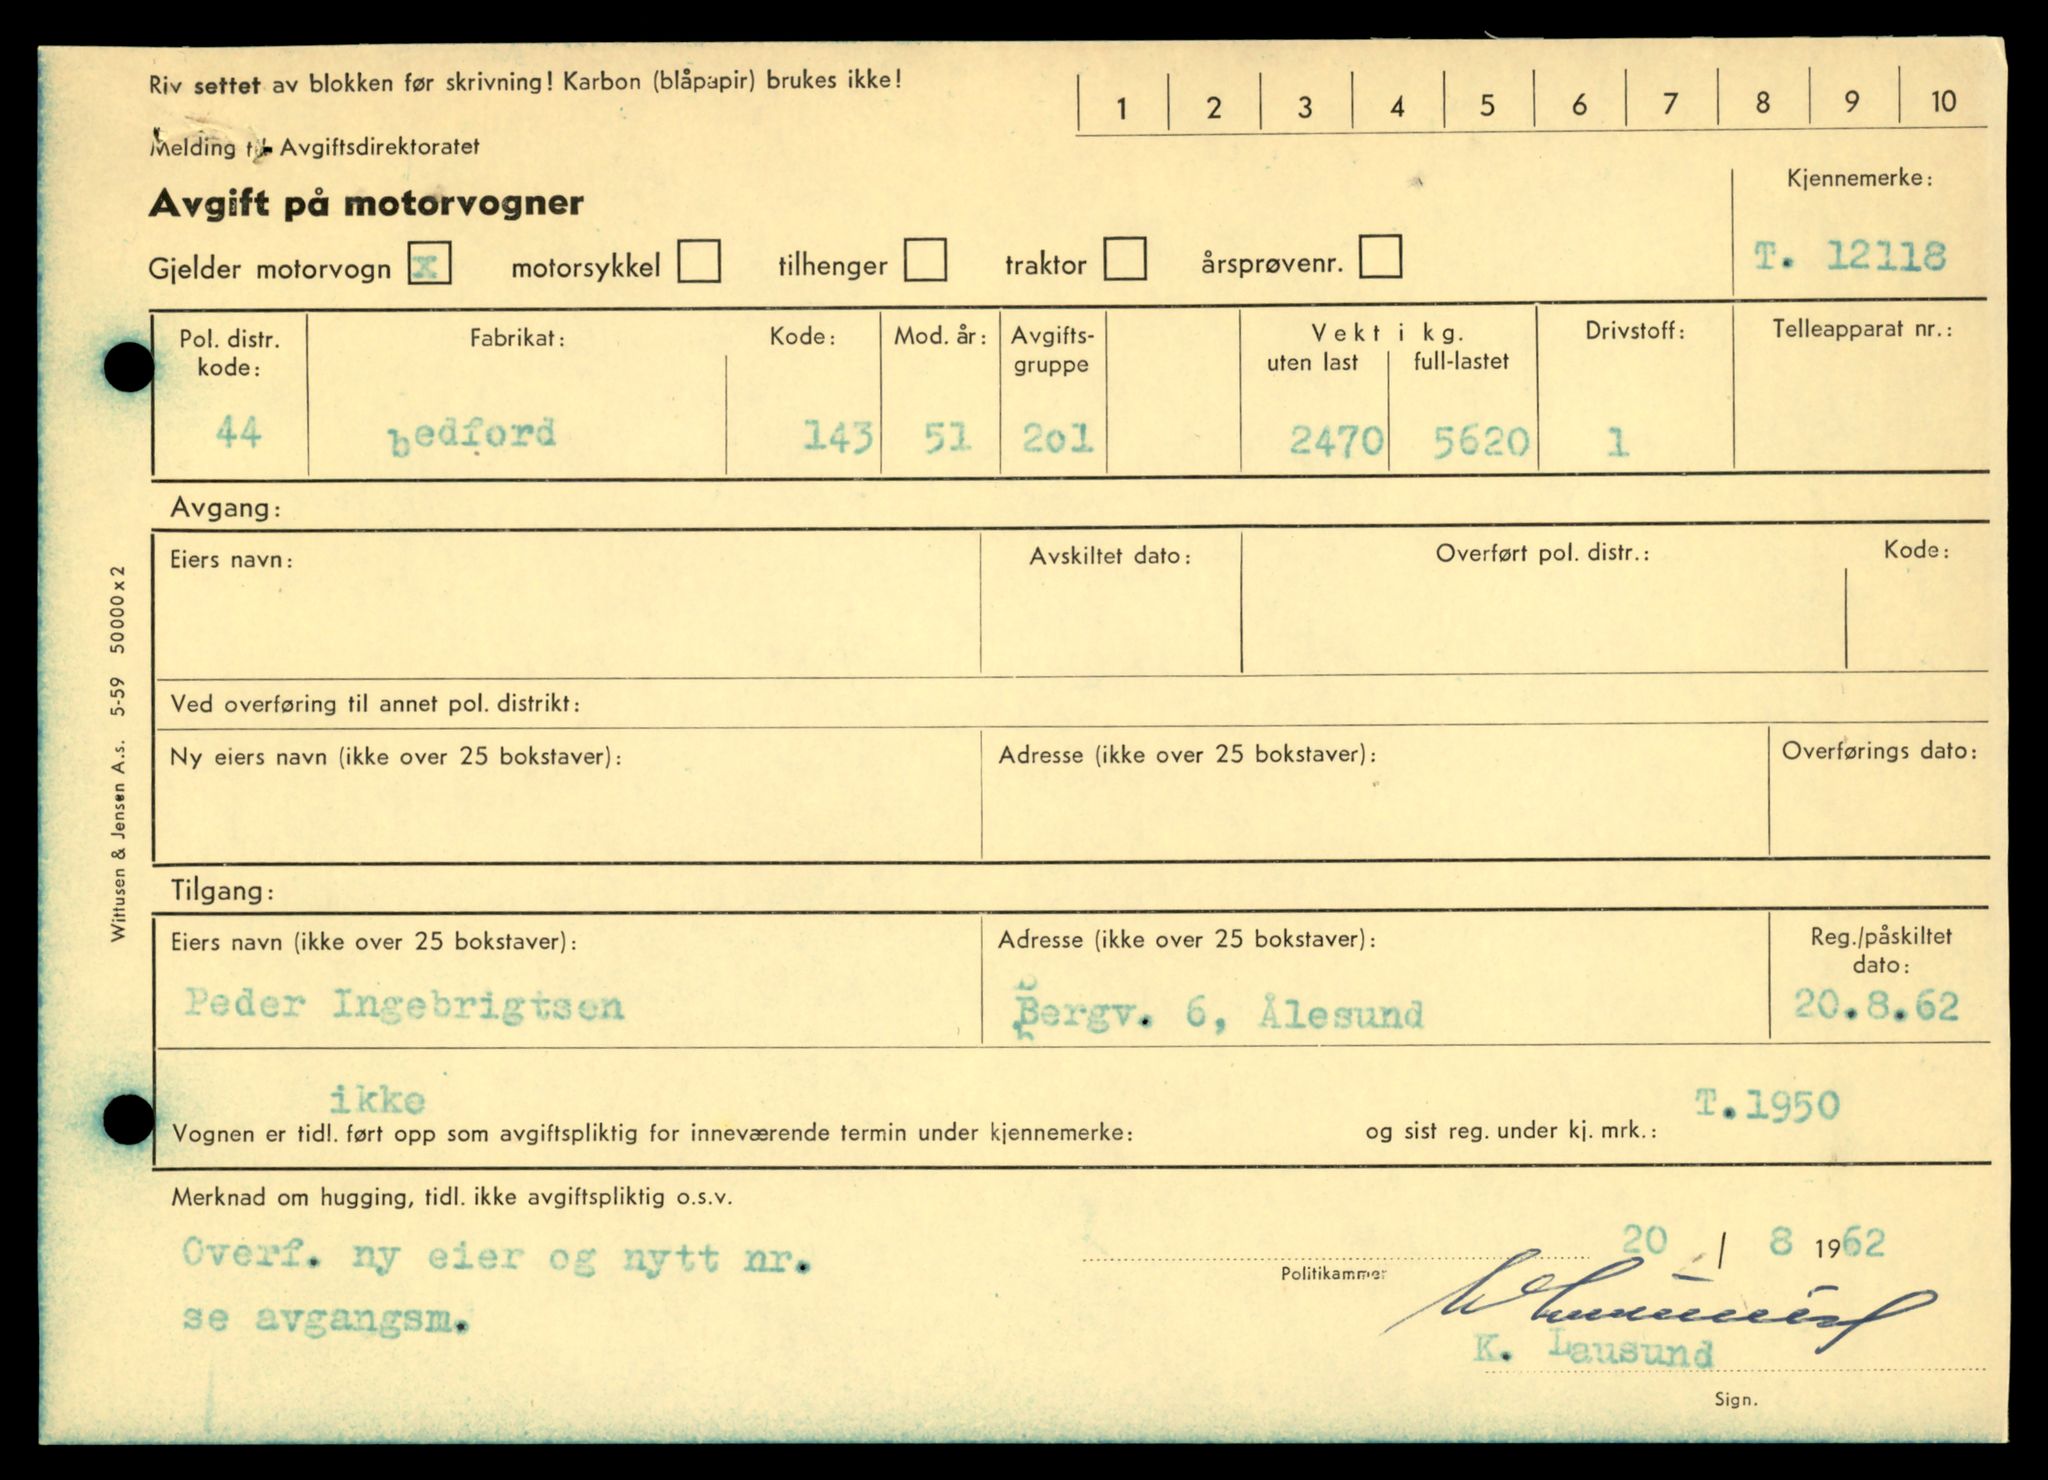 Riv settet av blokken før skrivning! Karbon (blåpapir) brukes ikke!
1 2 3 4 5 6 7 8 9 10
Melding til Avgiftsdirektoratet
Avgift på motorvogner
Kjennemerke:
Gjelder motorvogn x motorsykkel tilhenger traktor årsprøvenr.
T. 12118
Pol. distr. kode: Fabrikat: Kode: Mod. år: Avgifts-gruppe Vekt i kg. uten last full-lastet Drivstoff: Telleapparat nr.:
44 bedford 143 51 2o1 2470 5620 1
Avgang:
Eiers navn: Avskiltet dato: Overført pol. distr.: Kode:
Ved overføring til annet pol. distrikt:
Ny eiers navn (ikke over 25 bokstaver): Adresse (ikke over 25 bokstaver): Overførings dato:
Tilgang:
Eiers navn (ikke over 25 bokstaver): Adresse (ikke over 25 bokstaver): Reg./påskiltet dato:
Peder Ingebrigtsen Bergv. 6, Ålesund 20.8.62
ikke T.1950
Vognen er tidl. ført opp som avgiftspliktig for inneværende termin under kjennemerke: og sist reg. under kj. mrk.:
Merknad om hugging, tidl. ikke avgiftspliktig o.s.v.
Overf. ny eier og nytt nr.
20 / 8 1962
Politikammer
se avgangsm.
K. Lausund
Sign.
Wittusen & Jensen A.s. 5-59 50000 x 2